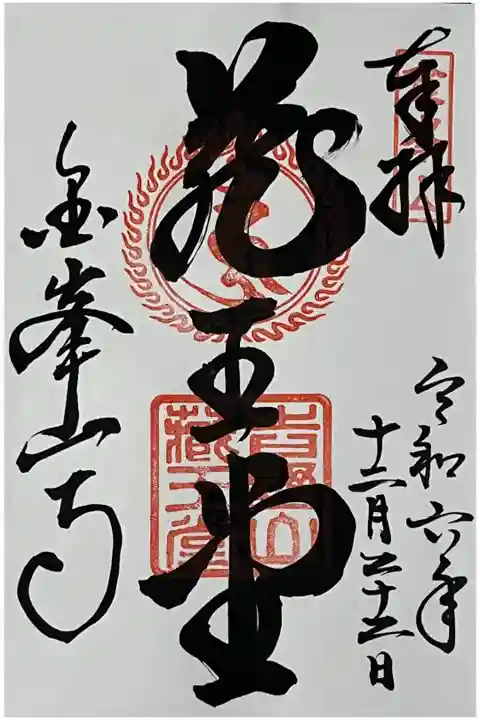 奉拝
令和六年
十二月二十二日
蔵王堂
金峯山寺